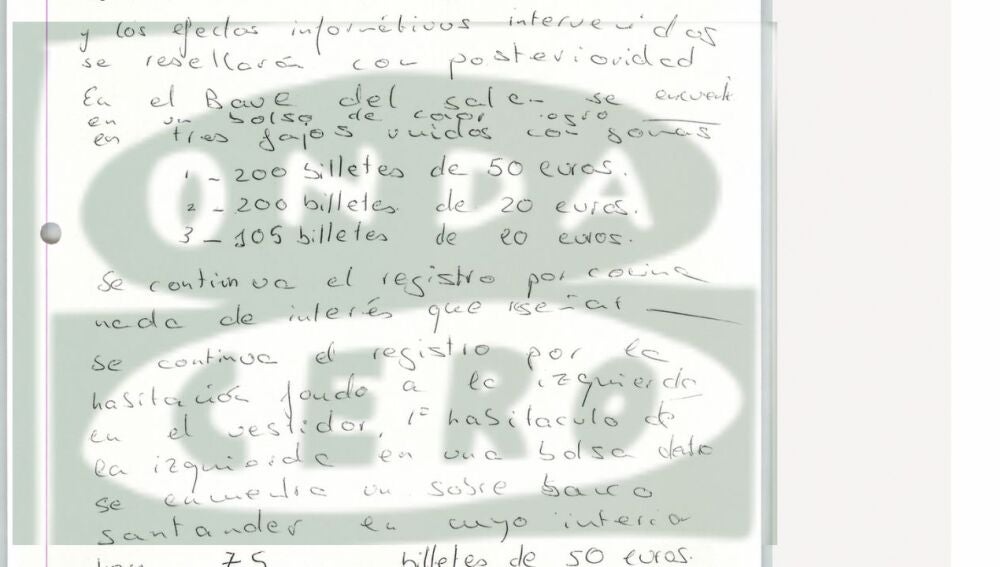 y los efectos informéticos intervenidos
se resellarán con posterioridad
En el Baue del salc- se encuent
en un bolso de
en tres fajos unidos con gomas
1 - 200 billetes de 50 euros.
2 - 200 billetes de 20 euros.
3 - 105 billetes de 20 euros.
Se continua el registro por cocina
nada de interés que reseñar
se continua el registro por la
habitación fondo a la izquierda
en el vestidor, 1º habitaculo de
la izquierda en una bolsa
se encuentra un sobre banco
santander en cuyo interior
75 billetes de 50 euros.
ONDA
CERO